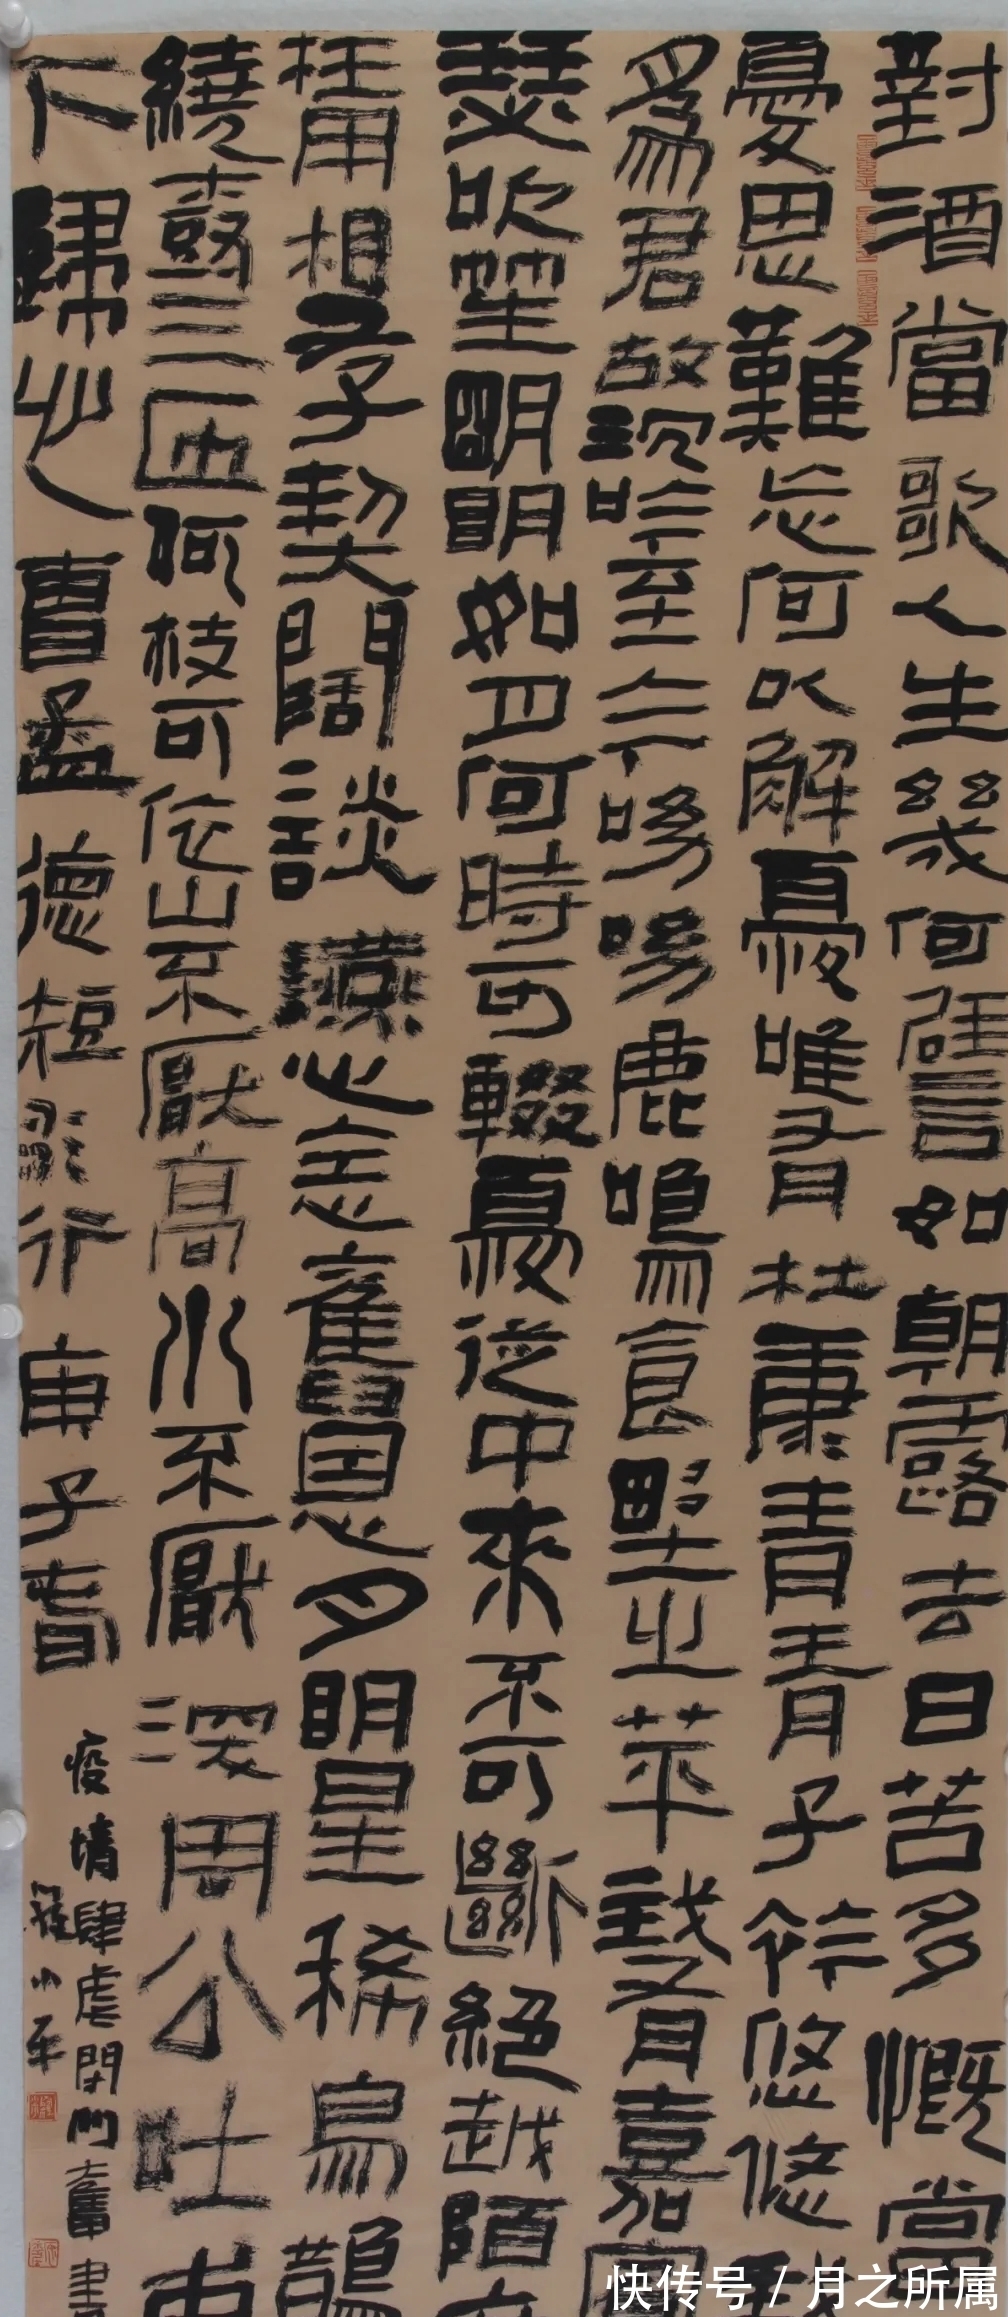 對酒當歌人生幾何譬如朝露去日苦多慨當
憂思難忘何以解憂唯有杜康青青子衿悠悠
為君故沉吟至今呦呦鹿鳴食野之苹我有嘉
瑟吹笙明明如月何時可輟憂從中來不可斷絕越陌
枉用相存契闊談讌心念舊恩月明星稀烏鵲
繞樹三匝何枝可依山不厭高水不厭深周公吐
下歸心 曹孟德短歌行 庚子春
疫情肆虐閉門奮書
小平
快传号 / 月之所属